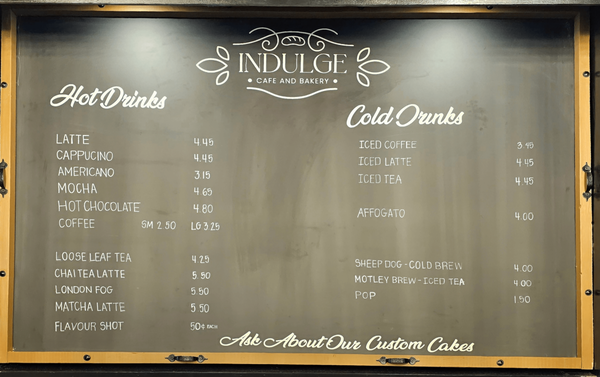 INDULGE
• CAFE AND BAKERY •
Hot Drinks
LATTE 4.45
CAPPUCINO 4.45
AMERICANO 3.15
MOCHA 4.65
HOT CHOCOLATE 4.80
COFFEE SM 2.50 LG 3.25
LOOSE LEAF TEA 4.25
CHAI TEA LATTE 5.50
LONDON FOG 5.50
MATCHA LATTE 5.50
FLAVOUR SHOT 50¢ EACH
Cold Drinks
ICED COFFEE 3.95
ICED LATTE 4.45
ICED TEA 4.45
AFFOGATO 4.00
SHEEP DOG - COLD BREW 4.00
MOTLEY BREW - ICED TEA 4.00
POP 1.50
Ask About Our Custom Cakes